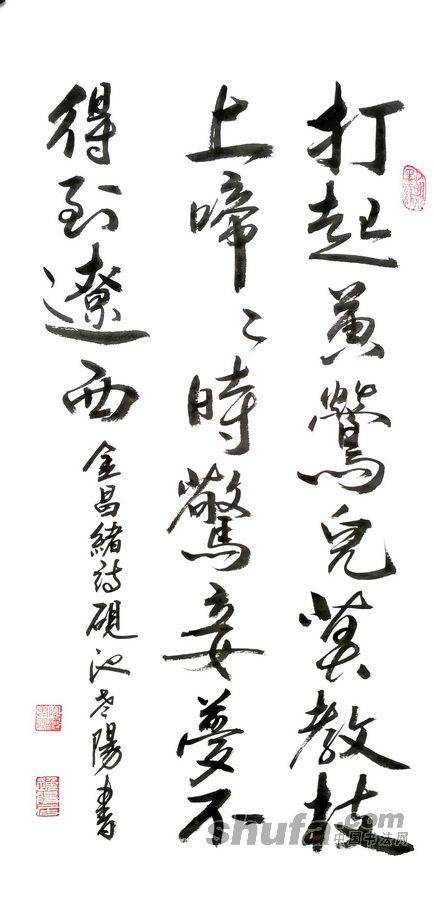 打起黄鶯兒莫教枝
上啼〻時驚妾夢不
得到遼西
金昌緒詩硯池老陽書
shufa.com
中国书法网